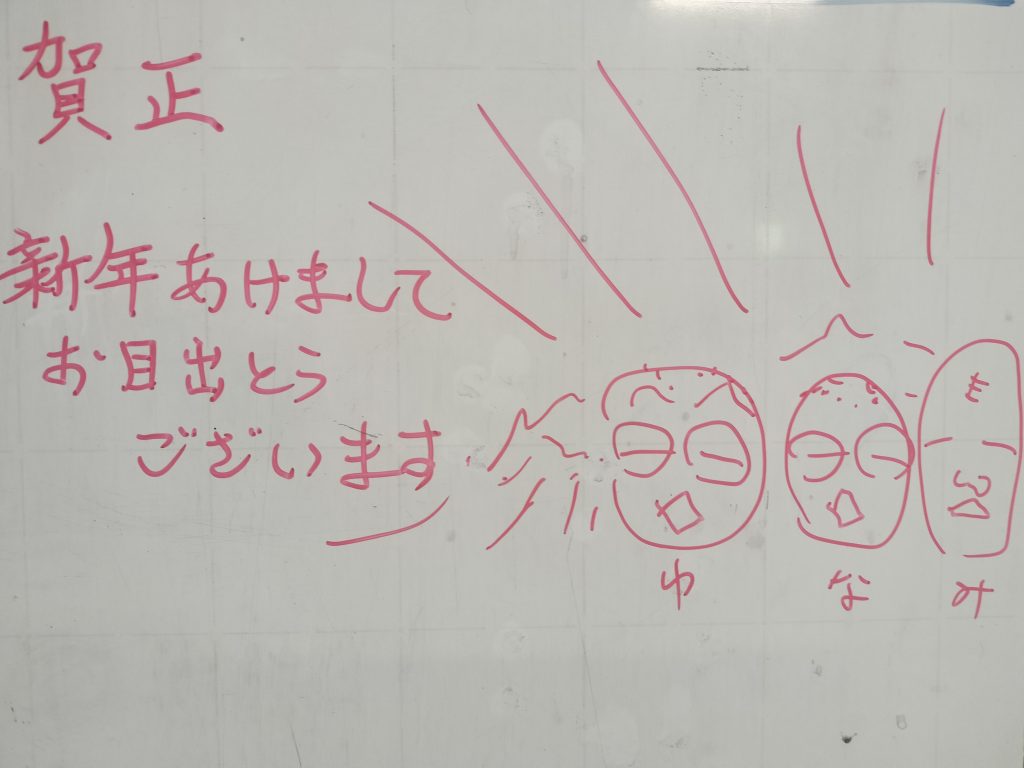 賀正
新年あけまして
お目出とう
ございます
ゆ な み